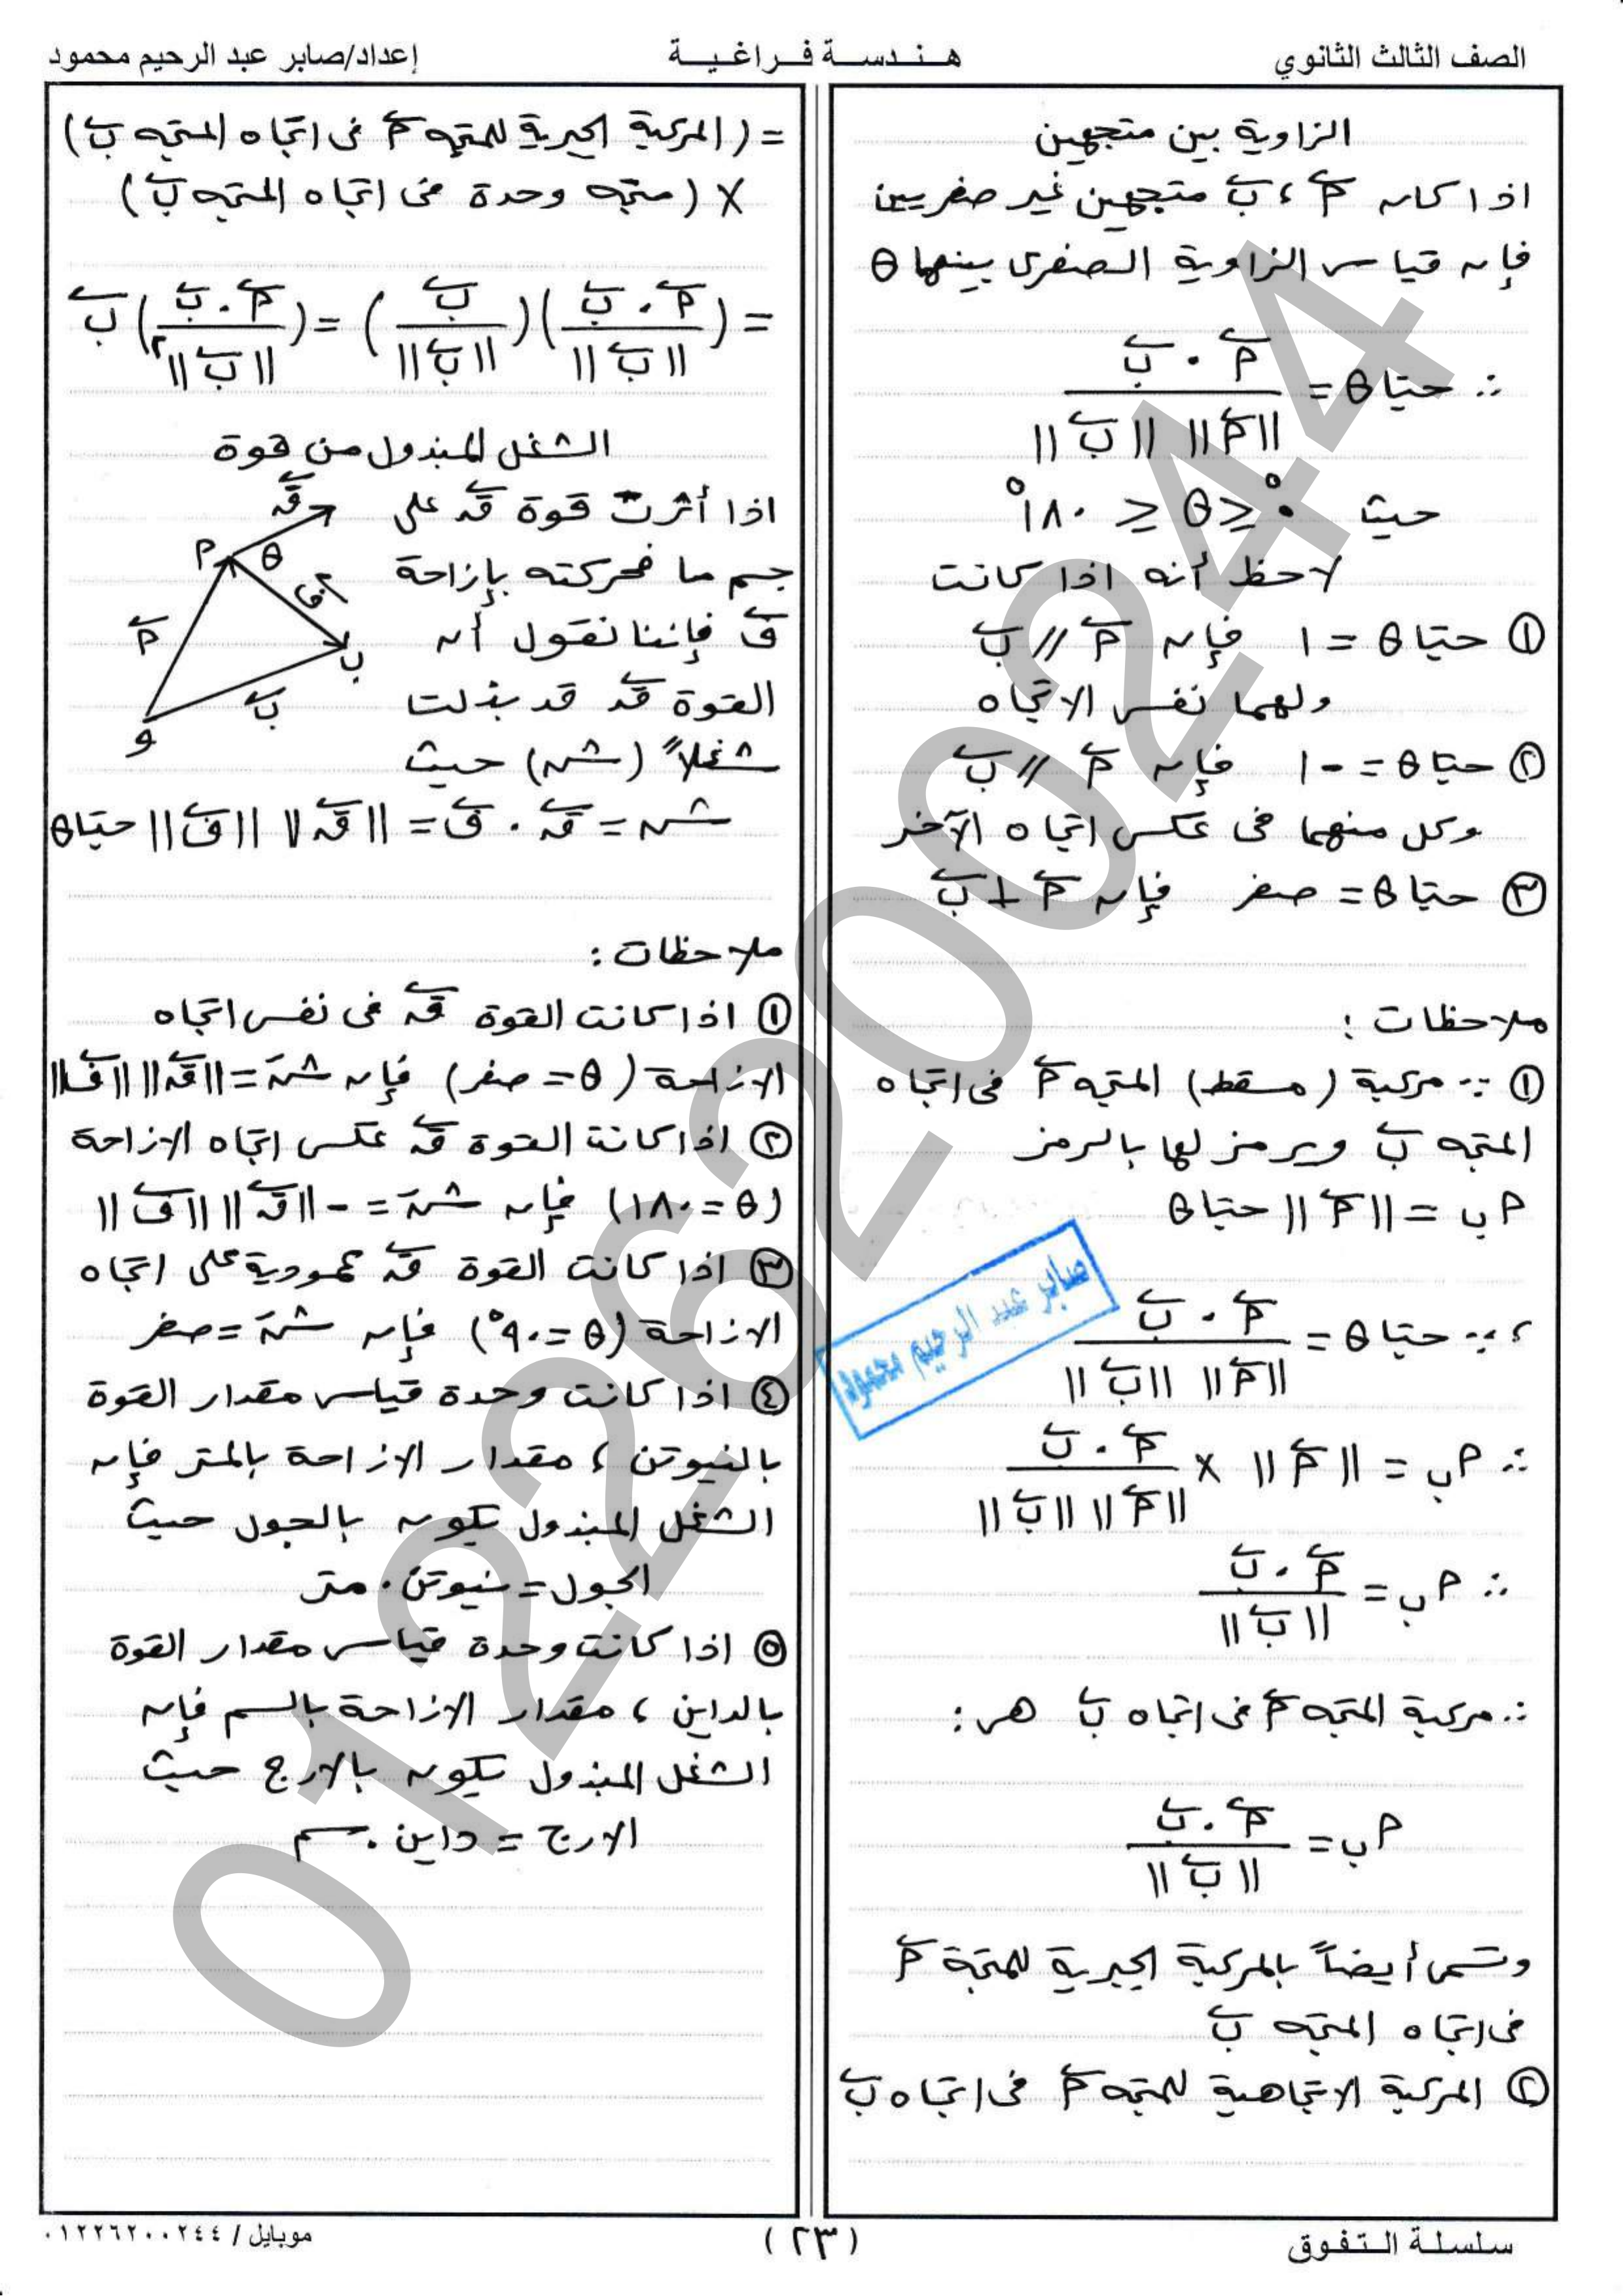 الصف الثالث الثانوي
هندسة فراغية
إعداد/صابر عبد الرحيم محمود
الزاوية بين متجهين
اذا كان أَ ، بَ متجهين غير صفريين
فإن قياس الزاوية الصغرى بينهما θ
∴ حتا θ = (أَ . بَ) / (||أَ|| ||بَ||)
حيث ٠° ≤ θ ≤ ١٨٠°
لاحظ أنه اذا كانت
① حتا θ = ١ فإن أَ // بَ
ولهما نفس الاتجاه
② حتا θ = -١ فإن أَ // بَ
وكل منهما فى عكس اتجاه الآخر
③ حتا θ = صفر فإن أَ ⊥ بَ
ملاحظات :
① ∵ مركبة (مسقط) المتجه أَ فى اتجاه
المتجه بَ ويرمز لها بالرمز
أب = ||أَ|| حتا θ
، ∵ حتا θ = (أَ . بَ) / (||أَ|| ||بَ||)
∴ أب = ||أَ|| × (أَ . بَ) / (||أَ|| ||بَ||)
∴ أب = (أَ . بَ) / ||بَ||
∴ مركبة المتجه أَ فى اتجاه بَ هى :
أب = (أَ . بَ) / ||بَ||
وتسمى أيضاً بالمركبة الجبرية للمتجة أَ
فى اتجاه المتجه بَ
② المركبة الاتجاهية للمتجه أَ فى اتجاه بَ
= (المركبة الجبرية للمتجه أَ فى اتجاه المتجه بَ)
× (متجه وحدة فى اتجاه المتجه بَ)
= ((أَ . بَ) / ||بَ||) (بَ / ||بَ||) = ((أَ . بَ) / ||بَ||²) بَ
الشغل المبذول من قوة
اذا أثرت قوة قَ على
جسم ما فحركته بإزاحة
فَ فإننا نقول أن
القوة قَ قد بذلت
شغلاً (شہ) حيث
شہ = قَ . فَ = ||قَ|| ||فَ|| حتا θ
قَ
أ
θ
فَ
أَ
ب
بَ
و
ملاحظات :
① اذا كانت القوة قَ فى نفس اتجاه
الازاحة (θ = صفر) فإن شہ = ||قَ|| ||فَ||
② اذا كانت القوة قَ عكس اتجاه الازاحة
(θ = ١٨٠) فإن شہ = - ||قَ|| ||فَ||
③ اذا كانت القوة قَ عمودية على اتجاه
الازاحة (θ = ٩٠°) فإن شہ = صفر
④ اذا كانت وحدة قياس مقدار القوة
بالنيوتن ، مقدار الازاحة بالمتر فإن
الشغل المبذول يكون بالجول حيث
الجول = نيوتن . متر
⑤ اذا كانت وحدة قياس مقدار القوة
بالداين ، مقدار الازاحة بالسم فإن
الشغل المبذول يكون بالارج حيث
الارج = داين . سم
صابر عبد الرحيم محمود
01226200244
سلسلة التفوق
(٢٣)
موبايل / ٠١٢٢٦٢٠٠٢٤٤